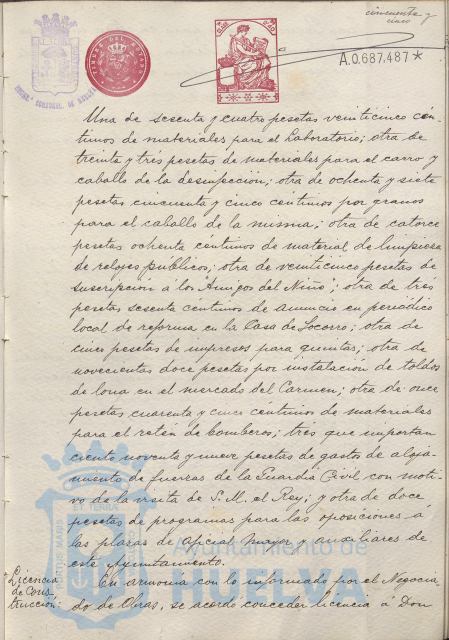 cincuenta y
cinco
A.0.687.487*
TIMBRE DEL ESTADO
Una de sesenta y cuatro pesetas veinticinco cén-
timos de materiales para el Laboratorio; otra de
treinta y tres pesetas de materiales para el carro y
caballo de la desinfección; otra de ochenta y siete
pesetas cincuenta y cinco centimos por granos
para el caballo de la misma; otra de catorce
pesetas ochenta céntimos de material de limpieza
de relojes públicos; otra de veinticinco pesetas de
suscripcion a los Amigos del Niño; otra de tres
pesetas sesenta céntimos de anuncio en periódico
local de reforma en la Casa de Socorro; otra de
cinco pesetas de impresos para quintas; otra de
novecientas doce pesetas por instalación de toldos
de lona en el mercado del Carmen; otra de once
pesetas cuarenta y cinco céntimos de materiales
para el retén de bomberos; tres que importan
ciento noventa y nueve pesetas de gastos de aloja-
miento de fuerzas de la Guardia Civil con moti-
vo de la visita de S. M. el Rey; y otra de doce
pesetas de programas para las oposiciones á
las plazas de oficial mayor y auxiliares de
este Ayuntamiento.
Licencia
de Cons
trucción:
En armonia con lo informado por el Negocia-
do de Obras, se acordó conceder licencia á Don
Ayuntamiento de
HUELVA